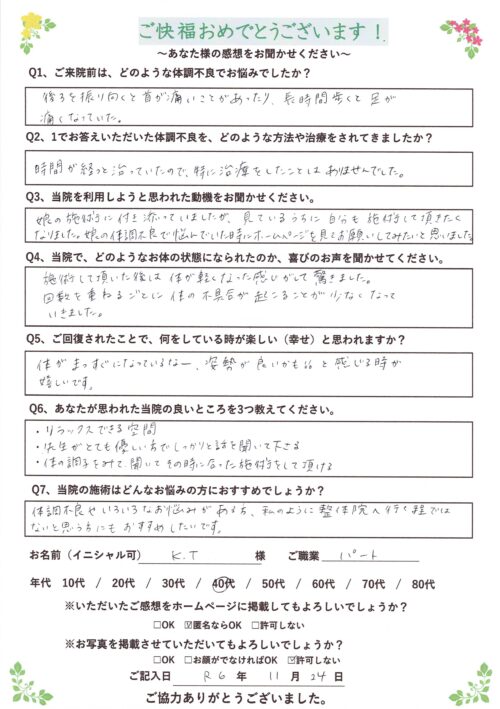 ご快福おめでとうございます！
～あなた様の感想をお聞かせください～
Q1、ご来院前は、どのような体調不良でお悩みでしたか？
後ろを振り向くと首が痛いことがあったり、長時間歩くと足が
痛くなっていた。
Q2、1でお答えいただいた体調不良を、どのような方法や治療をされてきましたか？
時間が経つと治っていたので、特に治療をしたことはありませんでした。
Q3、当院を利用しようと思われた動機をお聞かせください。
娘の施術に付き添っていましたが、見ているうちに自分も施術して頂きたく
なりました。娘の体調不良で悩んでいた時にホームページを見てお願いしてみたいと思いました
Q4、当院で、どのようなお体の状態になられたのか、喜びのお声を聞かせてください。
施術して頂いた後は体が軽くなった感じがして驚きました。
回数を重ねるごとに体の不具合が起こることが少なくなって
いきました。
Q5、ご回復されたことで、何をしている時が楽しい（幸せ）と思われますか？
体がまっすぐになっているなー、姿勢が良いかも!!と感じる時が
嬉しいです。
Q6、あなたが思われた当院の良いところを3つ教えてください。
・リラックスできる空間
・先生がとても優しい方でしっかりと話を聞いて下さる
・体の調子をみて、聞いてその時に合った施術をして頂ける
Q7、当院の施術はどんなお悩みの方におすすめでしょうか？
体調不良やいろいろなお悩みがある方、私のように整体院へ行く程では
ないと思う方にもおすすめしたいです。
お名前（イニシャル可） K.T 様 ご職業 パート
年代 10代 / 20代 / 30代 / 40代 / 50代 / 60代 / 70代 / 80代
※いただいたご感想をホームページに掲載してもよろしいでしょうか？
□OK ☑匿名ならOK □許可しない
※お写真を掲載させていただいてもよろしいでしょうか？
□OK □お顔がでなければOK ☑許可しない
ご記入日 R6 年 11 月 24 日
ご協力ありがとうございました。